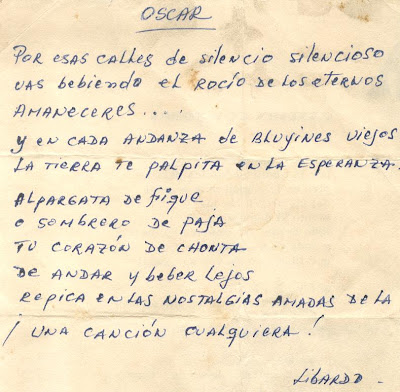 OSCAR
POR ESAS CALLES de silencio silencioso
vas bebiendo el ROCÍO DE LOS eternos
AMANECERES....
y en cada ANDANZA de Bluyines viejos
LA TIERRA TE PALPITA EN LA ESPERANZA.
ALPARGATA DE fique
o SOMBRERO DE PAJA
TU CORAZÓN DE CHONTA
DE ANDAR y beber Lejos
REPICA EN LAS NOSTALGIAS AMADAS DE LA
¡ UNA CANCIÓN CUALQUIERA !
LIBARDO -